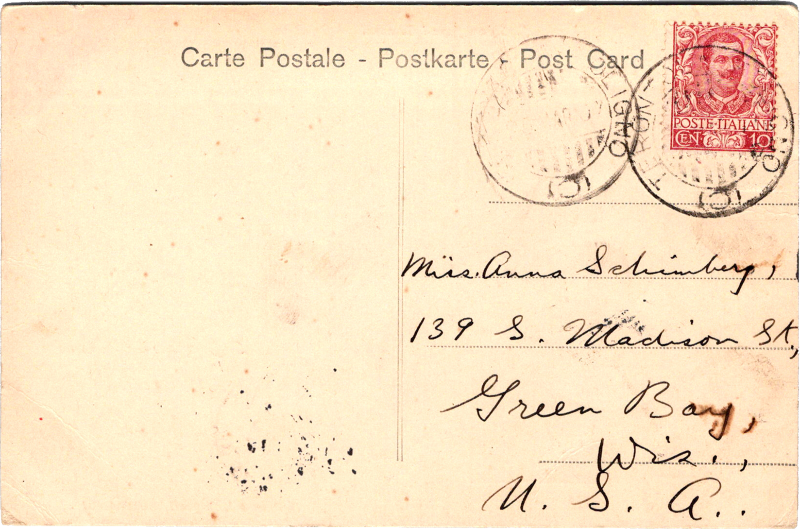 Carte Postale - Postkarte - Post Card
POSTE·ITALIANE
CEN 10
Miss. Anna Schimberg,
139 S. Madison St.,
Green Bay,
Wis.,
U. S. A..